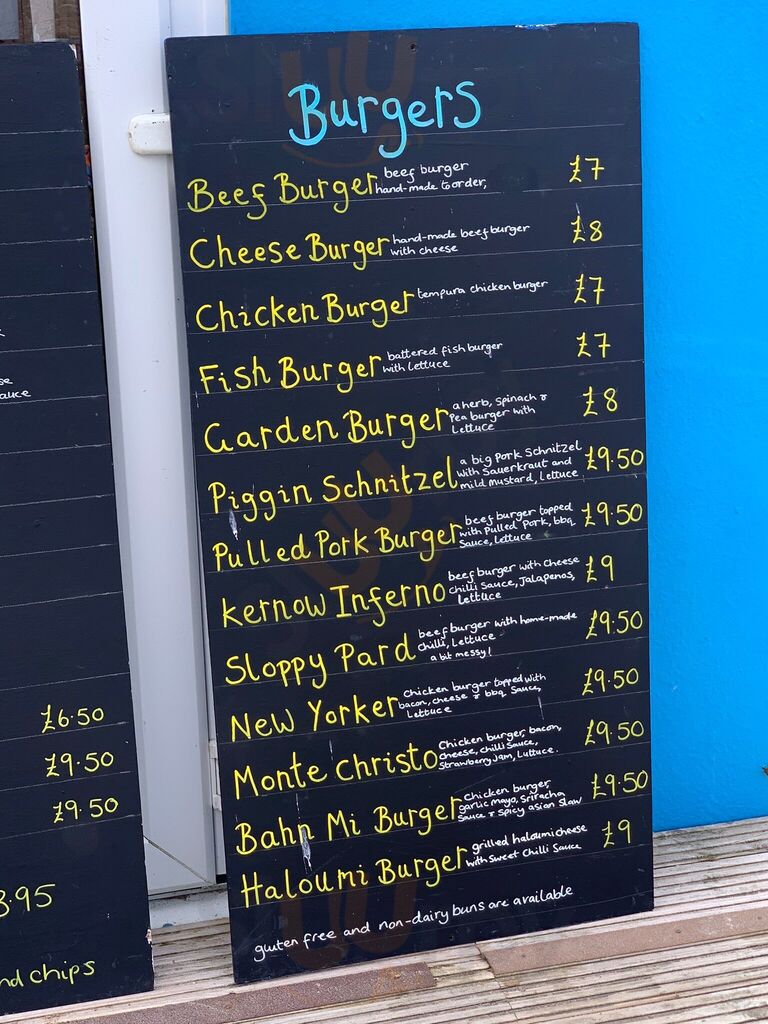 Burgers
Beef Burger beef burger hand-made to order, £7
Cheese Burger hand-made beef burger with cheese £8
Chicken Burger tempura chicken burger £7
Fish Burger battered fish burger with lettuce £7
Garden Burger a herb, Spinach & Pea burger with Lettuce £8
Piggin Schnitzel a big Pork Schnitzel with Sauerkraut and mild mustard, Lettuce £9.50
Pulled Pork Burger beef burger topped with Pulled Pork, bbq Sauce, Lettuce £9.50
Kernow Inferno beef burger with Cheese chilli Sauce, Jalapenos, Lettuce £9
Sloppy Pard beef burger with home-made chilli, Lettuce a bit messy! £9.50
New Yorker Chicken burger topped with bacon, cheese & bbq Sauce, Lettuce £9.50
Monte Christo Chicken burger, bacon, cheese, chilli Sauce, Strawberry Jam, Luttuce. £9.50
Bahn Mi Burger Chicken burger, garlic mayo, Sriracha Sauce & Spicy asian Slaw £9.50
Haloumi Burger grilled haloumi cheese with Sweet Chilli Sauce £9
gluten free and non-dairy buns are available
£6.50
£9.50
£9.50
.95
chips